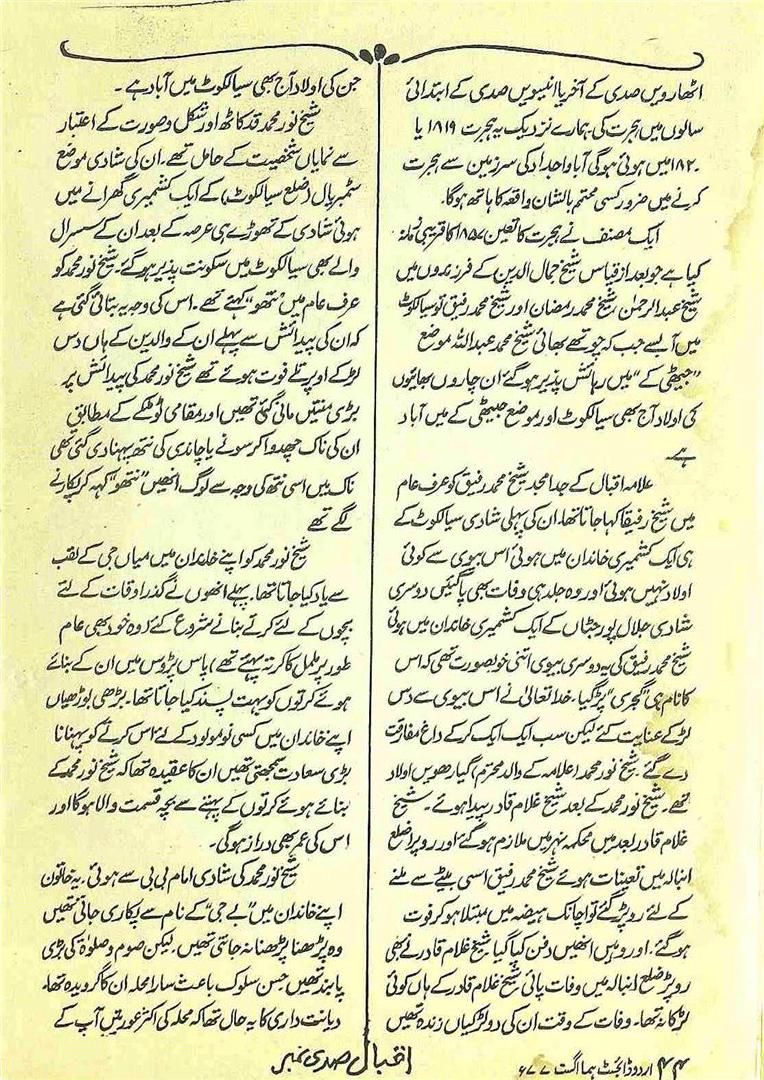 اٹھارویں صدی کے آخر یا انیسویں صدی کے ابتدائی
سالوں میں ہجرت کی ہمارے نزدیک یہ ہجرت ۱۸۱۹ یا
۱۸۲۰ میں ہوئی ہوگی آباو اجداد کی سرزمین سے ہجرت
کرنے میں ضرور کسی مہتم بالشان واقعہ کا ہاتھ ہوگا۔
ایک مصنف نے ہجرت کا تعین ۱۸۵۷ کا قریبی زمانہ
کیا ہے جو بعد از قیاس شیخ جمال الدین کے فرزندوں میں
شیخ عبدالرحمن شیخ محمد رمضان اور شیخ محمد رفیق تو سیالکوٹ
میں آبسے جب کہ چوتھے بھائی شیخ محمد عبداللہ موضع
”جیٹھی کے“ میں رہائش پذیر ہوگئے ان چاروں بھائیوں
کی اولاد آج بھی سیالکوٹ اور موضع جیٹھی کے میں آباد
ہے۔
علامہ اقبال کے جد امجد شیخ محمد رفیق کو عرف عام
میں شیخ رفیقا کہا جاتا تھا، ان کی پہلی شادی سیالکوٹ کے
ہی ایک کشمیری خاندان میں ہوئی اس بیوی سے کوئی
اولاد نہیں ہوئی اور وہ جلد ہی وفات بھی پاگئیں دوسری
شادی جلال پور جٹاں کے ایک کشمیری خاندان میں ہوئی
شیخ محمد رفیق کی یہ دوسری بیوی اتنی خوبصورت تھی کہ اس
کا نام ہی ”گجری“ پڑ گیا۔ خدا تعالیٰ نے اس بیوی سے دس
لڑکے عنایت کئے لیکن سب ایک ایک کرکے داغ مفارقت
دے گئے۔ شیخ نور محمد (علامہ کے والد محترم) گیارھویں اولاد
تھے۔ شیخ نور محمد کے بعد شیخ غلام قادر پیدا ہوئے۔ شیخ
غلام قادر بعد میں محکمہ نہر میں ملازم ہوگئے اور روپڑ ضلع
انبالہ میں تعینات ہوئے شیخ محمد رفیق اسی بیٹے سے ملنے
کے لئے روپڑ گئے تو اچانک ہیضہ میں مبتلا ہوکر فوت
ہوگئے۔ اور وہیں انھیں دفن کیا گیا شیخ غلام قادر نے بھی
روپڑ ضلع انبالہ میں وفات پائی شیخ غلام قادر کے ہاں کوئی
لڑکا نہ تھا۔ وفات کے وقت ان کی دو لڑکیاں زندہ تھیں
جن کی اولاد آج بھی سیالکوٹ میں آباد ہے۔
شیخ نور محمد قد کاٹھ اور شکل و صورت کے اعتبار
سے نمایاں شخصیت کے حامل تھے۔ ان کی شادی موضع
سمبڑیال (ضلع سیالکوٹ) کے ایک کشمیری گھرانے میں
ہوئی شادی کے تھوڑے ہی عرصہ کے بعد ان کے سسرال
والے بھی سیالکوٹ میں سکونت پذیر ہوگئے۔ شیخ نور محمد کو
عرف عام میں ”نتھو“ کہتے تھے۔ اس کی وجہ یہ بتائی گئی ہے
کہ ان کی پیدائش سے پہلے ان کے والدین کے ہاں دس
لڑکے اوپر تلے فوت ہوئے تھے شیخ نور محمد کی پیدائش پر
بڑی منتیں مانی گئی تھیں اور مقامی ٹوٹکے کے مطابق
ان کی ناک چھدوا کر سونے یا چاندی کی نتھ پہنا دی گئی تھی
ناک میں اسی نتھ کی وجہ سے لوگ انھیں ”نتھو“ کہہ کر پکارنے
لگے تھے
شیخ نور محمد کو اپنے خاندان میں میاں جی کے لقب
سے یاد کیا جاتا تھا۔ پہلے انھوں نے گذر اوقات کے لئے
بچوں کے لئے کرتے بنانے شروع کئے (وہ خود بھی عام
طور پر ململ کا کرتہ پہنتے تھے) پاس پڑوس میں ان کے بنائے
ہوئے کرتوں کو بہت پسند کیا جاتا تھا۔ بڑھی بوڑھیاں
اپنے خاندان میں کسی نومولود کے لئے اس کرتے کو پہنانا
بڑی سعادت سمجھتی تھیں ان کا عقیدہ تھا کہ شیخ نور محمد کے
بنائے ہوئے کرتوں کے پہننے سے بچہ قسمت والا ہوگا اور
اس کی عمر بھی دراز ہوگی۔
شیخ نور محمد کی شادی امام بی بی سے ہوئی۔ یہ خاتون
اپنے خاندان میں ”بے جی“ کے نام سے پکاری جاتی تھیں
وہ پڑھنا پڑھنا نہ جانتی تھیں۔ لیکن صوم و صلوٰۃ کی بڑی
پابند تھیں حسن سلوک باعث سارا محلہ ان کا گرویدہ تھا۔
دیانت داری کا یہ حال تھا کہ محلہ کی اکثر عورتیں آپ کے
۴۴ اردو ڈائجسٹ ہما اگست ۷۷ء
اقبال صدی نمبر